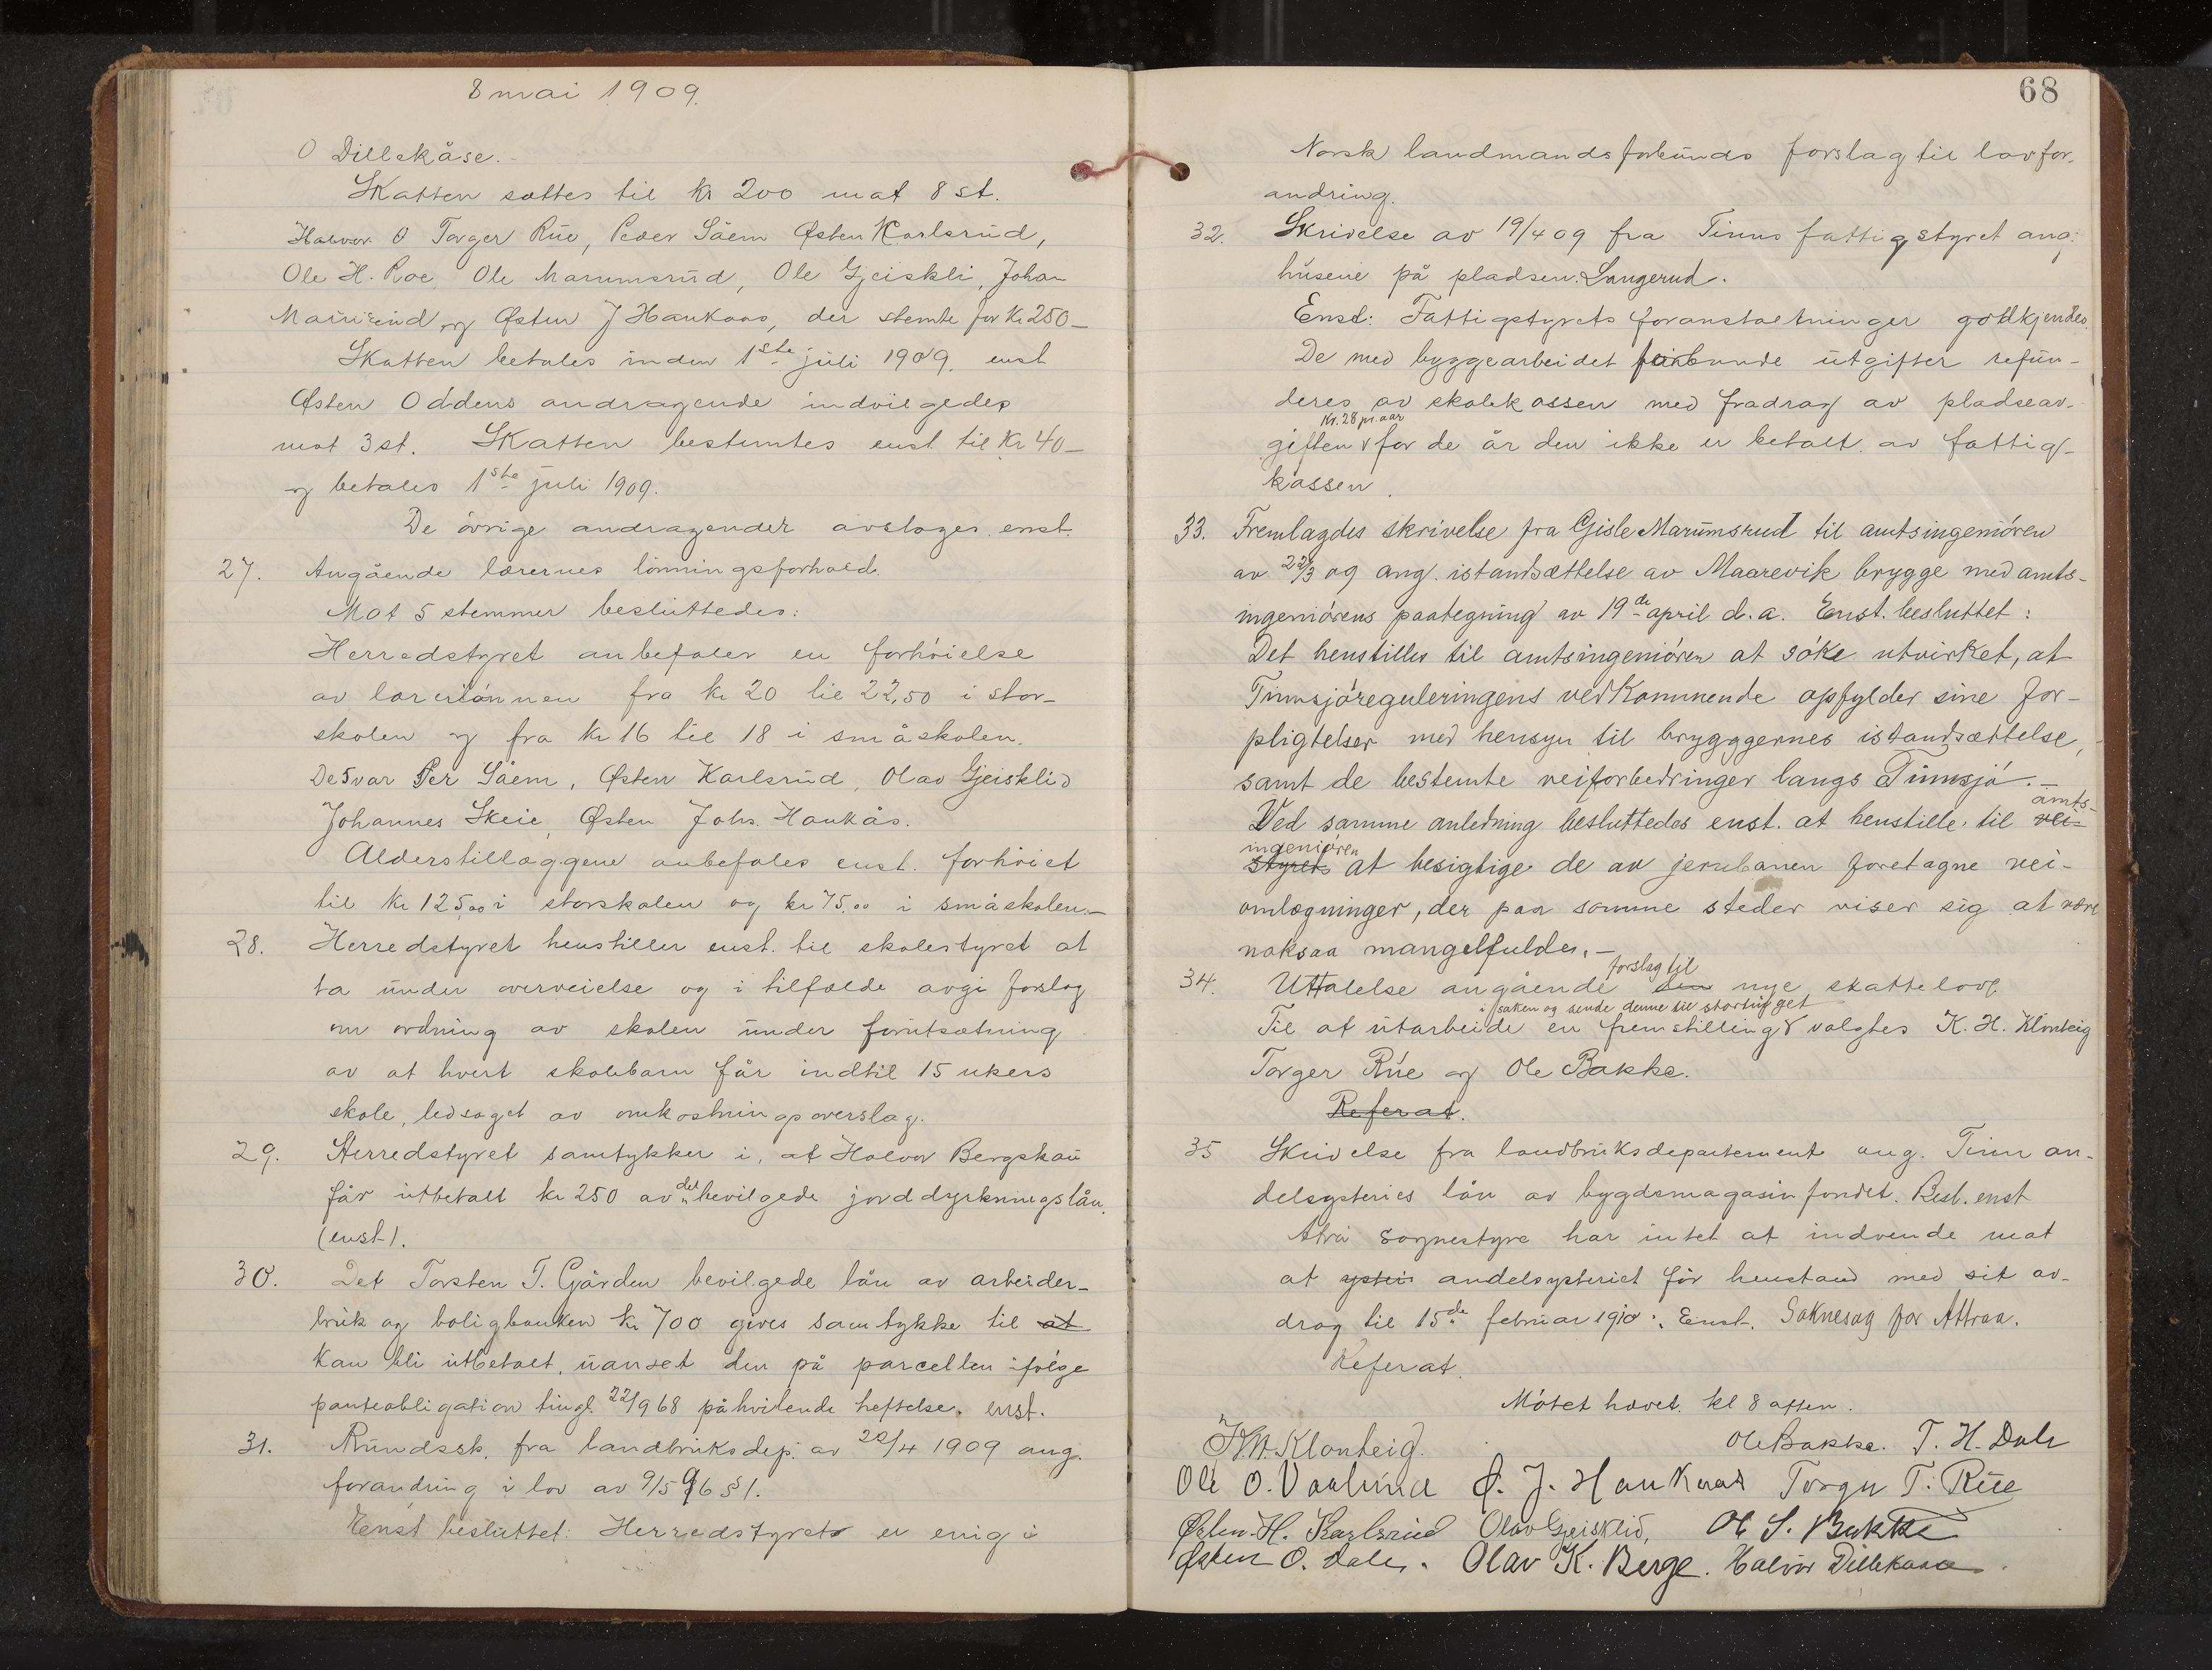 8 mai 1909.
O Dillekåse.
Skatten sættes til kr 200 mot 8 st.
Halvor O Torger Rue, Peder Såem Østen Karlsrud,
Ole H. Roe, Ole Marumsrud, Ole Gjeiskli, Johan
og Østen J Haukaas, der stemte for kr 250_
Skatten betales inden 1ste juli 1909. enst
Østen Oddens andragende indvilgedes
mot 3 st. Skatten bestemtes enst til kr 40_
og betales 1ste juli 1909.
De övrige andragender avsloges enst.
27. Angående lærernes lönningsforhold.
Mot 5 stemmer besluttedes:
Herredstyret anbefaler en forhöielse
av lærerlönnen fra kr 20 til 22,50 i stor-
skolen og fra kr 16 til 18 i småskolen.
De 5 var Per Såem, Østen Karlsrud, Olav Gjeisklid
Johannes Skeie, Østen Johs. Haukås.
Alderstillæggene anbefales enst. forhöiet
til kr 125,00 i storskolen og kr 75,00 i småskolen._
28. Herredstyret henstiller enst. til skolestyret at
ta under overveielse og i tilfælde avgi forslag
om ordning av skolen under forutsætning
av at hvert skolebarn får indtil 15 ukers
skole, ledsaget av omkostningsoverslag.
29. Herredstyret samtykker i, at Halvor Bergskau
får utbetalt kr 250 av det bevilgede jorddyrkningslån.
(enst).
30. Det Torsten T. Gården bevilgede lån av arbeider-
bruk og boligbanken kr 700 gives samtykke til at
kan bli utbetalt, uanset den på parcellen ifölge
panteobligation tingl. 22/9 68 påhvilende heftelse. enst.
31. Rundssk. fra landbruksdep. av 20/4 1909 ang.
forandring i lov av 9/5 96 § 1.
Enst besluttet: Herredstyret er enig i
68
Norsk landmandsforbunds forslag til lovfor-
andring.
32. Skrivelse av 19/4 09 fra Tinns fattigstyret ang.
husene på pladsen Langerud.
Enst: Fattigstyrets foranstaltninger godkjendes.
De med byggearbeidet forbunde utgifter refun-
deres av skolekassen med fradrag av pladseav-
kr. 28 pr. aar
giften for de år den ikke er betalt av fattig-
kassen.
33. Fremlagdes skrivelse fra Gisle Marumsrud til amtsingeniören
av 22/3 09 ang. istandsættelse av Maarevik brygge med amts-
ingeniörens paategning av 19de april d.a. Enst. besluttet:
Det henstilles til amtsingeniören at söke utvirket, at
Tinnsjöreguleringens vedkommende opfylder sine for-
pligtelser med hensyn til brygggernes istandsættelse,
samt de bestemte veiforbedringer langs Tinnsjö._
Ved samme anledning besluttedes enst. at henstille til vei-
amts-
ingeniören
styrets at besigtige de av jernbanen foretagne vei-
omlægninger, der paa somme steder viser sig at være
noksaa mangelfulde._
34. Uttalelse angående den forslag til nye skattelove.
i saken og sende denne til stortinget
Til at utarbeide en fremstilling valgtes K. H. Klonteig
Torger Rue og Ole Bakke.
Referat.
35 Skrivelse fra landbruksdepartement ang. Tinn an-
delsysteries lån av bygdemagasinfondet. Besl. enst
Atrå sognestyre har intet at indvende mot
at ysteri andelsysteriet får henstand med sit av-
drag til 15de februar 1910. Enst. Soknesag for Attraa.
Referat.
Mötet hævet kl 8 aften.
K. H. Klonteig. Ole Bakke. T. H. Dale
Ole O. Ø. J. Haukaas Torger T. Rue
Østen H. Karlsrud Olav Gjeisklid, Ole S. Bakke
Østen O. Dale. Olav K. Berge. Halvor Dillekaas